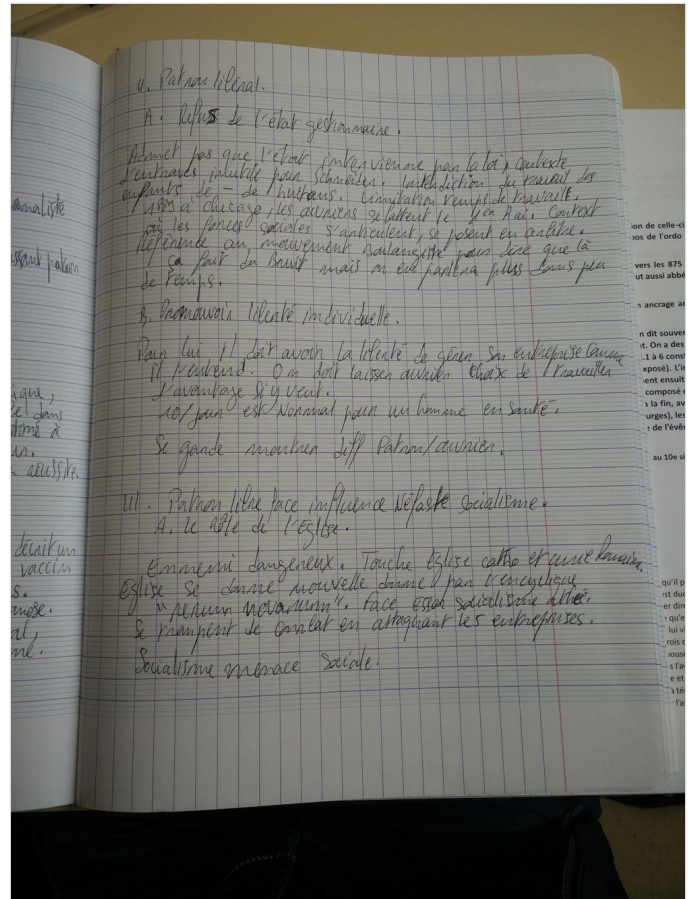 amaliste
patron
que,
dans
à
un.
réussite.
décrit un
vaccin
s.
al,
né.
II. Patron libéral.
A. Refus de l'état gestionnaire.
Admet pas que l'état intervienne par la loi, contexte
d'entraves, inutile pour Schneider. Interdiction du travail des
enfants de - de huit ans. Limitation temps de travail.
1889 à Chicago, les ouvriers se battent le 1er Mai. Context
où les forces sociales s'articulent, se posent en arbitre.
Référence au mouvement Boulangiste pour dire que là
ça fait du Bruit mais on en parlera plus dans peu
de temps.
B. Promouvoir liberté individuelle.
Pour lui il doit avoir la liberté de gérer son entreprise comme
il l'entend. On doit laisser ouvrier choix de travailler
d'avantage si y veut.
10/jour est Normal pour un homme en santé.
Se garde montrer diff Patron/ouvrier.
III. Patron libre face influence Néfaste socialisme.
A. Le rôle de l'Eglise.
Ennemi dangereux. Touche Eglise catho et curie Romaine,
Eglise se donne nouvelle donne par l'encyclique
"rerum novarum". Face essor socialisme athée.
Se trompent de combat en attaquant les entreprises.
Socialisme menace sociale.
ion de celle-ci
pos de l'ordo
vers les 875
ut aussi abbé
n ancrage ar
n dit souver
t. On a des
.1 à 6 const
xposé). L'in
ent ensuit
composé d
à la fin, av
urges), les
de l'évê
au 10e si
qu'il p
st duc
er dire
qu'e
lui vi
rois d
ouse
s l'av
e et
à té
l'as